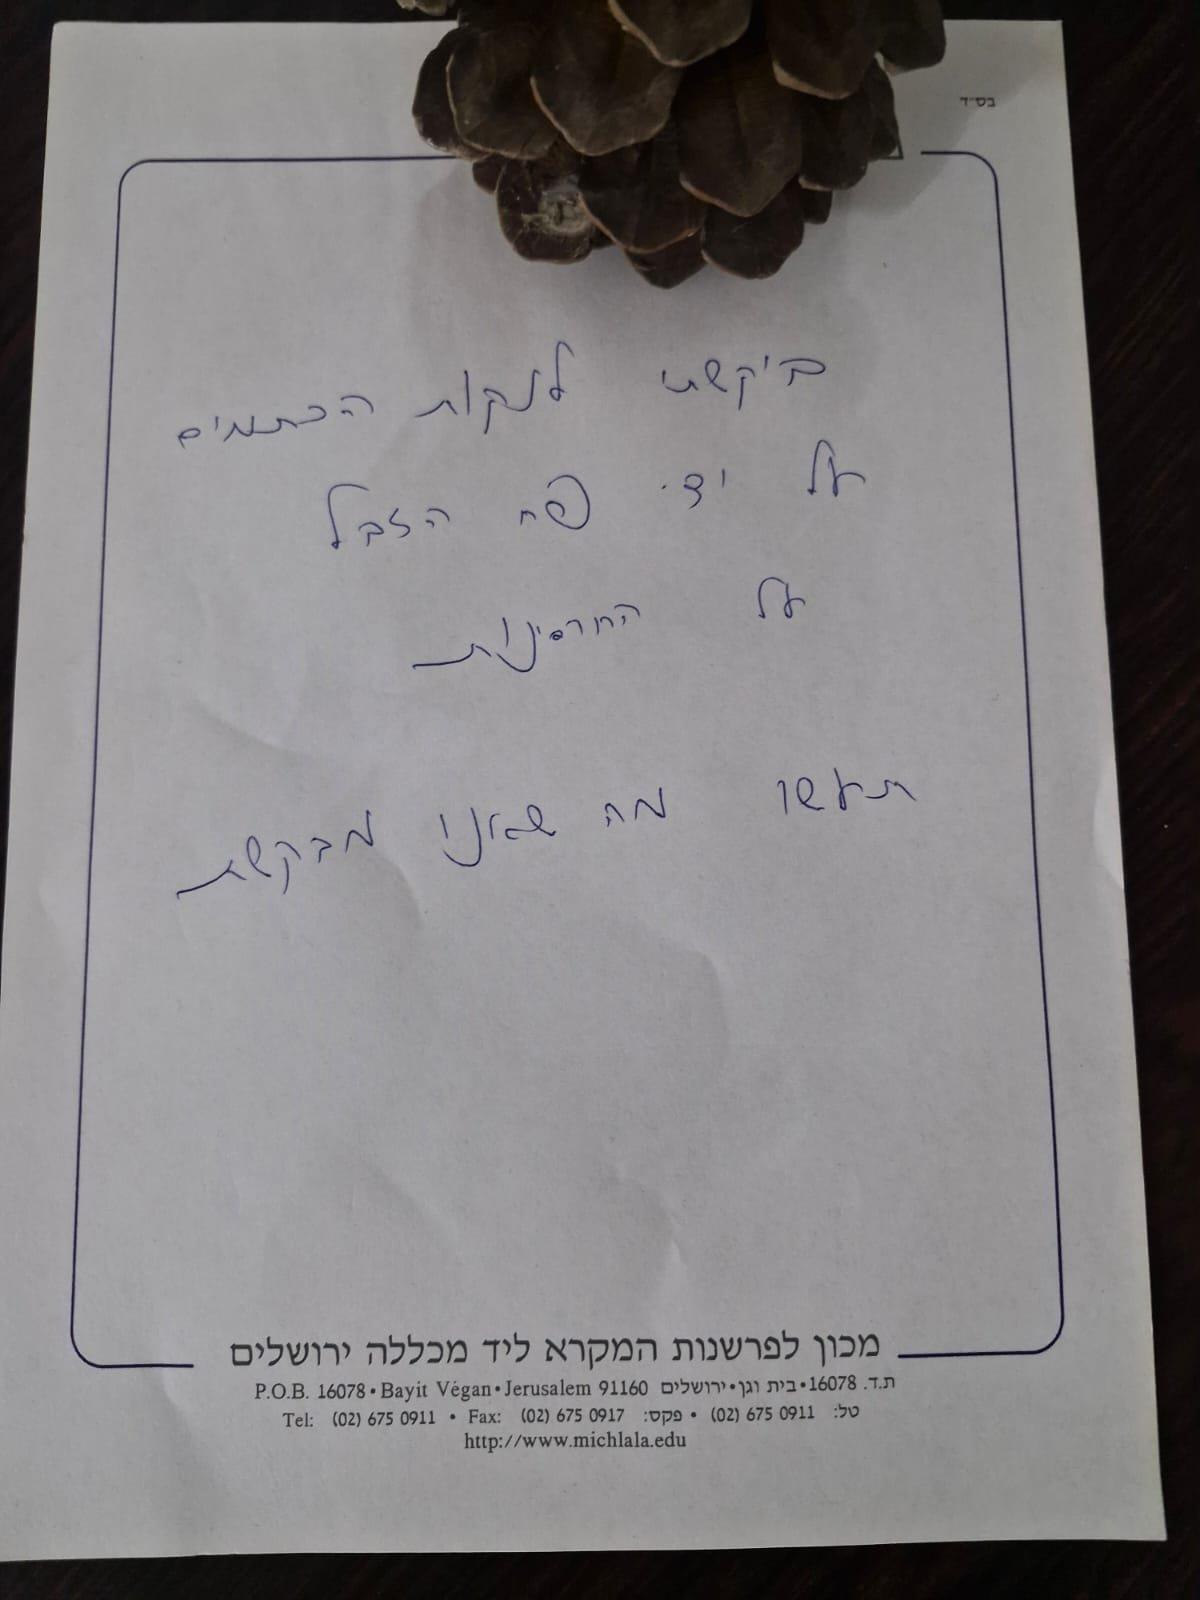 בס״ד
ביקשתי לנקות הכתמים
על ידי פח הזבל
על החרסינות
תעשו מה שאני מבקשת
מכון לפרשנות המקרא ליד מכללה ירושלים
ת.ד. 16078 • בית וגן • ירושלים P.O.B. 16078 • Bayit Vegan • Jerusalem 91160
טל: (02) 675 0911 • פקס: (02) 675 0917 Tel: (02) 675 0911 • Fax:
http://www.michlala.edu